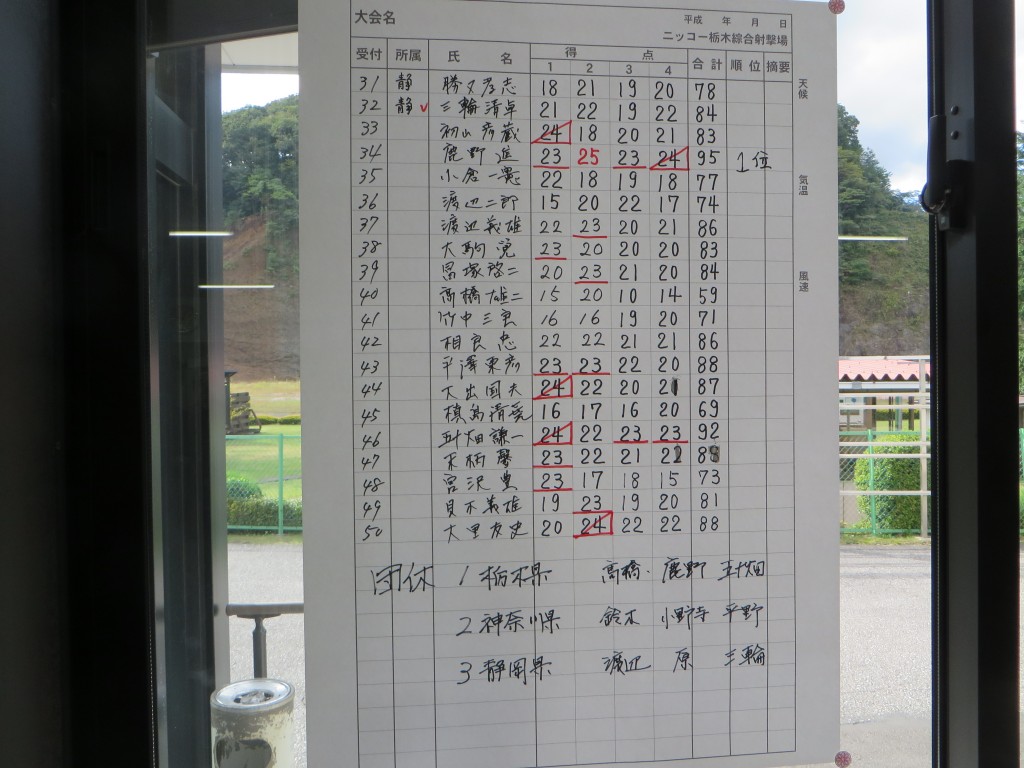 大会名 平成 年 月 日
ニッコー栃木綜合射撃場
受付 所属 氏 名 得 点 合計 順位 摘要
1 2 3 4
天候
気温
風速
31 静 勝又孝志 18 21 19 20 78
32 静 三輪清卓 21 22 19 22 84
33 初山彦蔵 24 18 20 21 83
34 鹿野進 23 25 23 24 95 1位
35 小倉一憲 22 18 19 18 77
36 渡辺二郎 15 20 22 17 74
37 渡辺義雄 22 23 20 21 86
38 大駒寛 23 20 20 20 83
39 塚啓二 20 23 21 20 84
40 高橋雄二 15 20 10 14 59
41 竹中三 16 16 19 20 71
42 相良忠 22 22 21 21 86
43 平澤東彦 23 23 22 20 88
44 大出国夫 24 22 20 21 87
45 槙島清 16 17 16 20 69
46 五十畑謙一 24 22 23 23 92
47 柄馨 23 22 21 22 88
48 宮沢豊 23 17 18 15 73
49 義雄 19 23 19 20 81
50 大里友史 20 24 22 22 88
団体 1 栃木県 高橋・鹿野 五十畑
2 神奈川県 鈴木 小野寺 平野
3 静岡県 渡辺 原 三輪